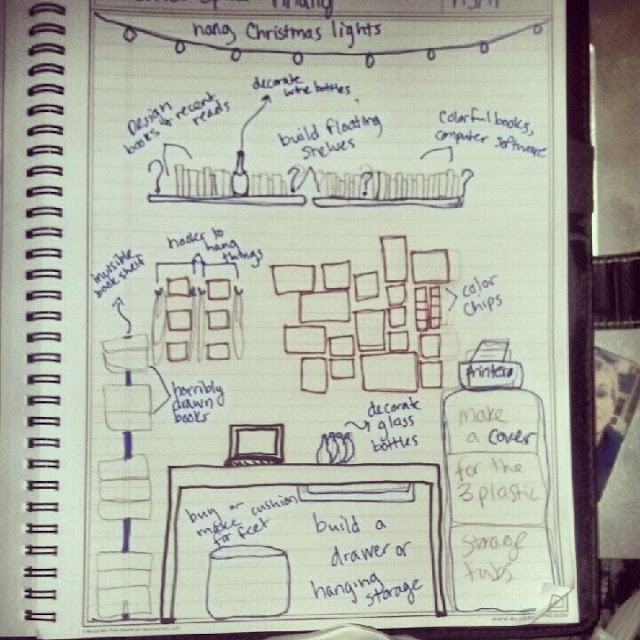 hang Christmas lights
decorate
wine bottles
Design
books & recent
reads
build floating
shelves
Colorful books,
computer software
?
?
?
?
hooks to
hang
things
invisible
book shelf
color
chips
Printer
horribly
drawn
books
decorate
glass
bottles
make
a cover
for the
3 plastic
storage
tubs
buy or cushion
make for feet
build a
drawer or
hanging
storage